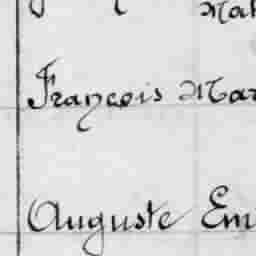 François Mar
Auguste Em